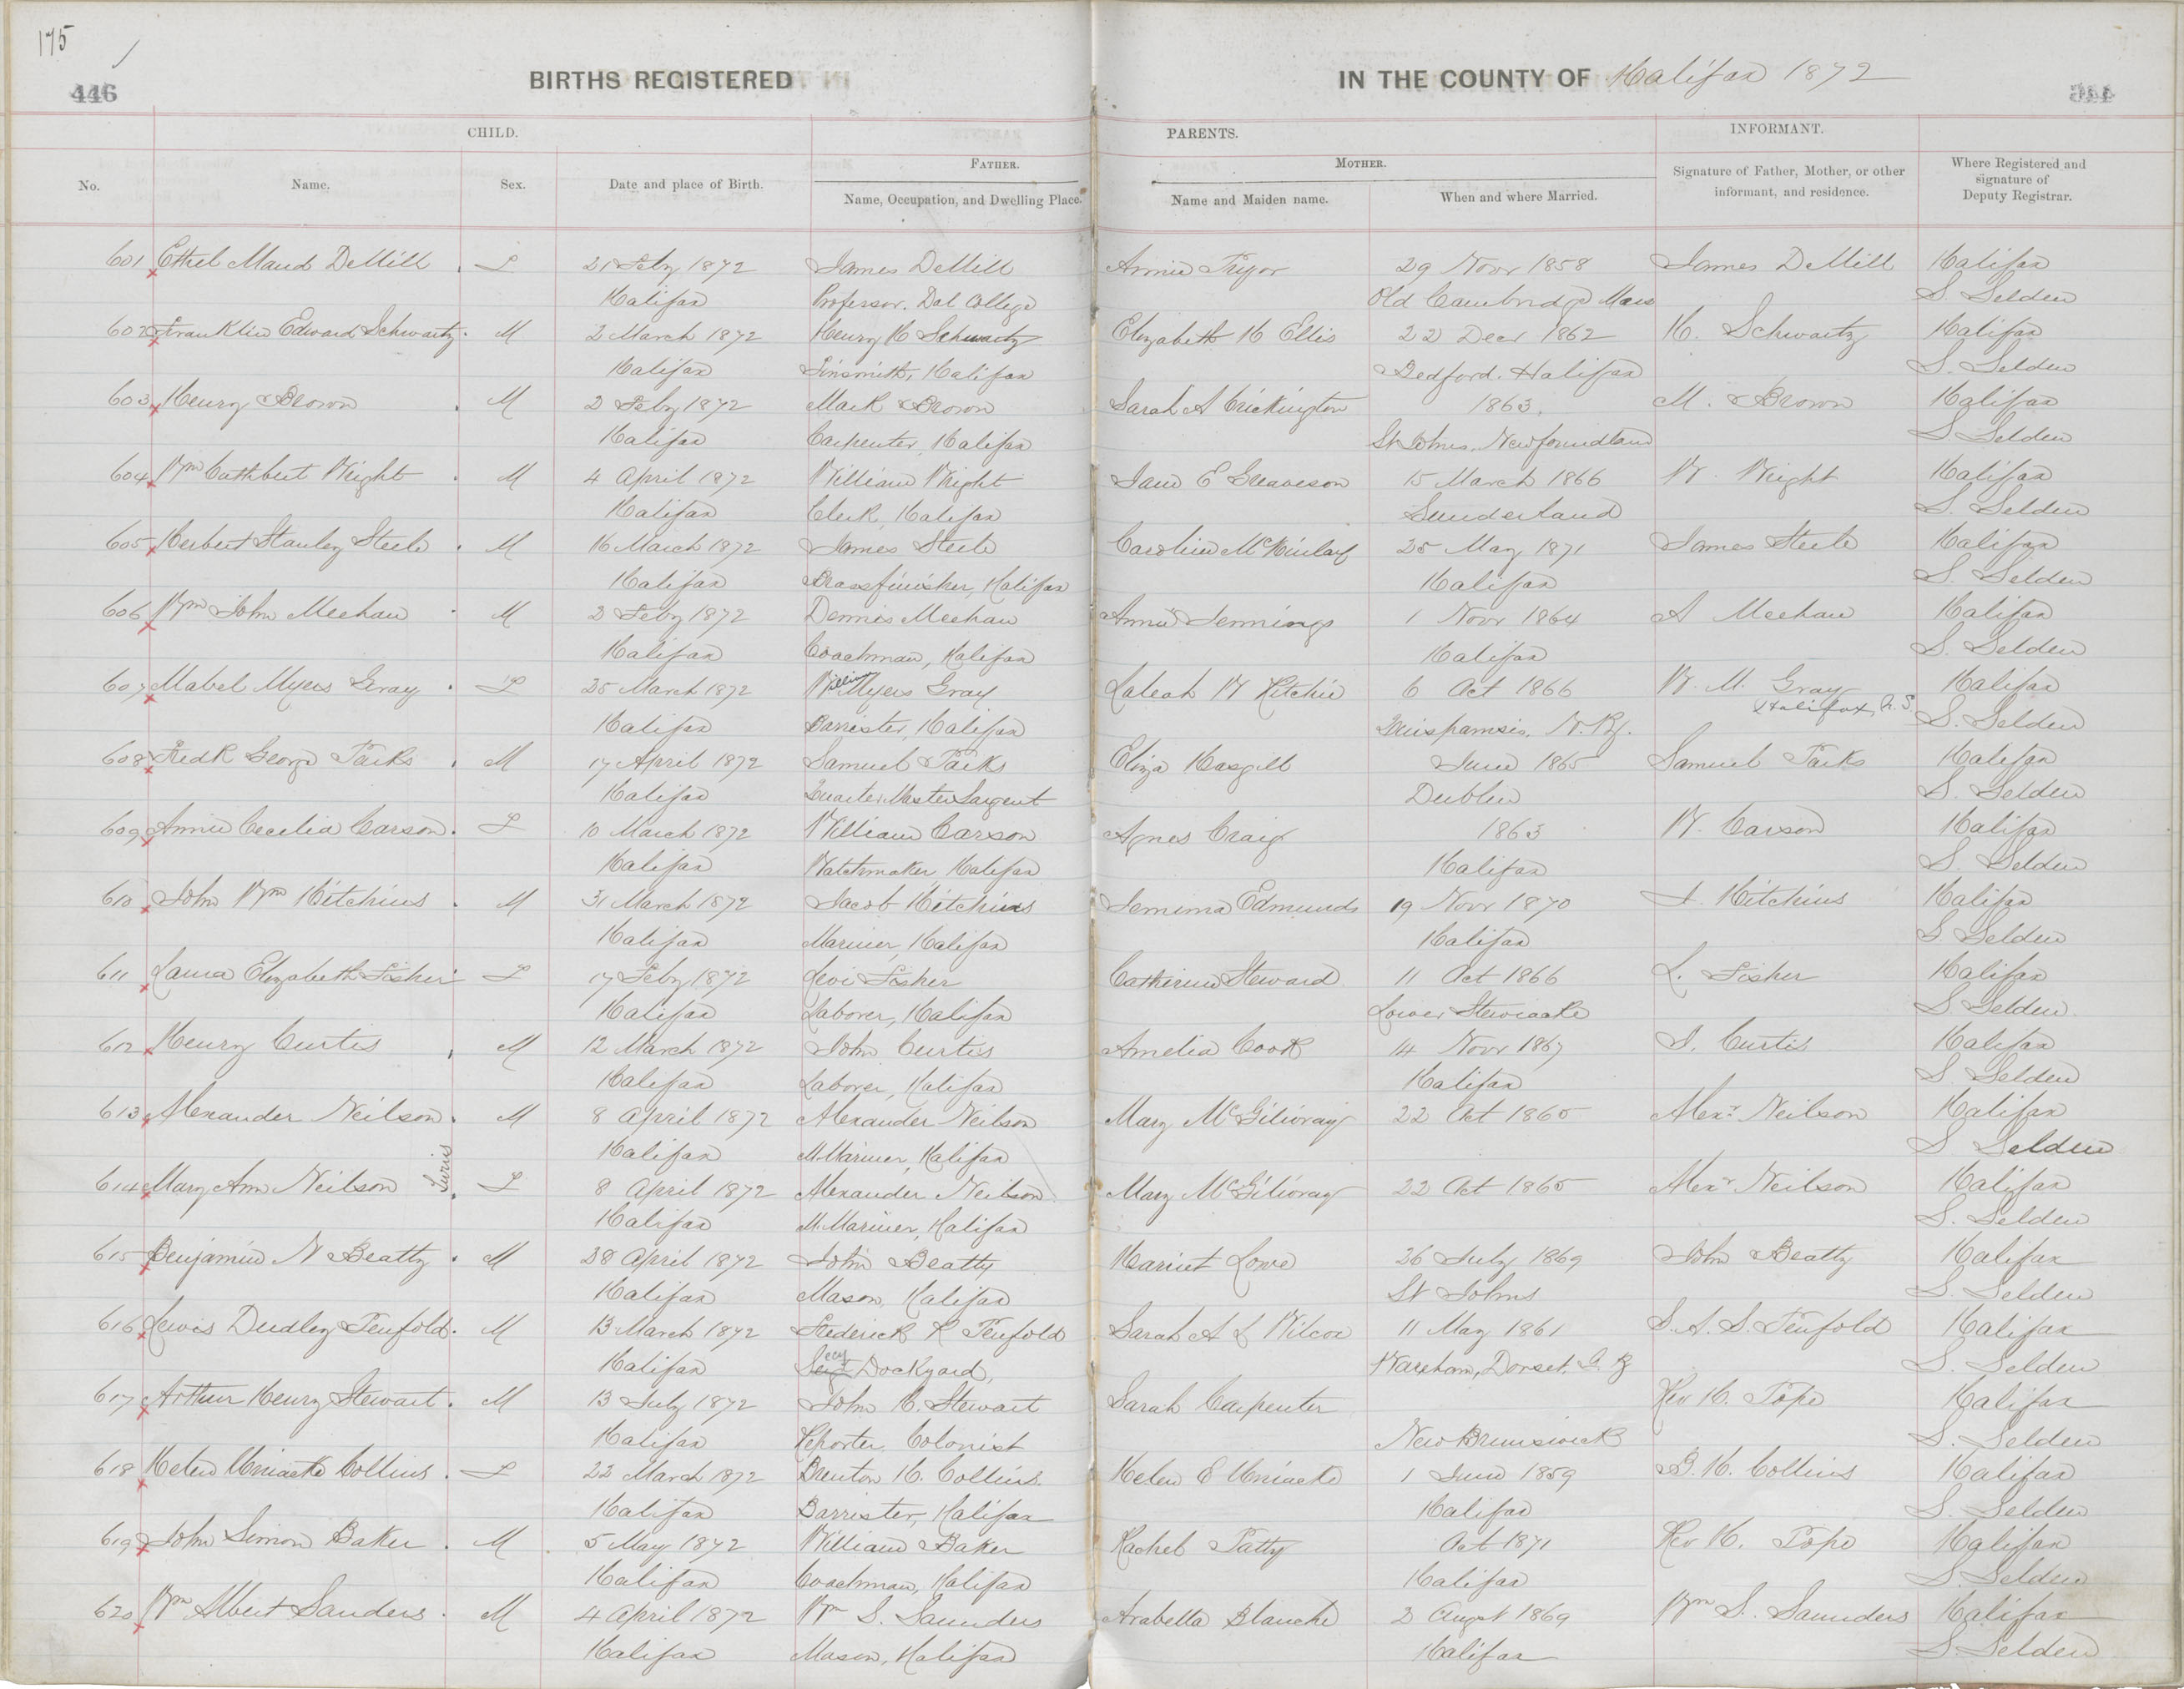 175
446
BIRTHS REGISTERED
IN THE COUNTY OF Halifax 1872
CHILD.
PARENTS.
INFORMANT.
No.
Name.
Sex.
Date and place of Birth.
FATHER.
Name, Occupation, and Dwelling Place.
MOTHER.
Name and Maiden name.
When and where Married.
Signature of Father, Mother, or other informant, and residence.
Where Registered and signature of Deputy Registrar.
601 Ethel Maud DeMill F 21 Feby 1872 James DeMill Annie Pryor 29 Novr 1858 James DeMill Halifax
Halifax Professor. Dal College Old Cambridge Mass S. Selden
602 Franklin Edward Schwartz M 2 March 1872 Henry H Schwartz Elizabeth H Ellis 22 Decr 1862 H. Schwartz Halifax
Halifax Tinsmith, Halifax Bedford. Halifax S. Selden
603 Henry Brown M 2 Feby 1872 Mark Brown Sarah A Crickington 1863. M. Brown Halifax
Halifax Carpenter, Halifax St Johns, Newfoundland S Selden
604 Wm Cuthbert Wright M 4 April 1872 William Wright Jane E Greaveson 15 March 1866 W. Wright Halifax
Halifax Clerk, Halifax Sunderland S. Selden
605 Herbert Stanley Steele M 16 March 1872 James Steele Caroline McKinlay 25 May 1871 James Steele Halifax
Halifax Brassfinisher, Halifax Halifax S. Selden
606 Wm John Meehan M 2 Feby 1872 Dennis Meehan Annie Jennings 1 Novr 1864 A Meehan Halifax
Halifax Coachman, Halifax Halifax S. Selden
607 Mabel Myers Gray F 25 March 1872 William Myers Gray W Ritchie 6 Oct 1866 W. M. Gray Halifax
Halifax, N.S.
Halifax Barrister, Halifax Quispamsis, N.B. S. Selden
608 Fredk George Parks M 17 April 1872 Samuel Parks Eliza Hasgill June 1865 Samuel Parks Halifax
Halifax Quarter Master Sargent Dublin S. Selden
609 Annie Cecelia Carson F 10 March 1872 William Carson Agnes Craig 1863 W. Carson Halifax
Halifax Watchmaker Halifax Halifax S. Selden
610 John Wm Hitchins M 31 March 1872 Jacob Hitchins Jemima Edmunds 19 Novr 1870 J. Hitchins Halifax
Halifax Mariner, Halifax Halifax S Selden
611 Laura Elizabeth Fisher F 17 Feby 1872 Levi Fisher Catherine Steward 11 Oct 1866 L. Fisher Halifax
Halifax Laborer, Halifax Lower Stewiacke S Selden
612 Henry Curtis M 12 March 1872 John Curtis Amelia Cook 14 Novr 1867 J. Curtis Halifax
Halifax Laborer, Halifax Halifax S. Selden
613 Alexander Neilson M 8 April 1872 Alexander Neilson Mary McGilivray 22 Oct 1865 Alexr Neilson Halifax
Halifax M. Mariner, Halifax S Selden
Twins
614 Mary Ann Neilson F 8 April 1872 Alexander Neilson Mary McGilivray 22 Oct 1865 Alexr Neilson Halifax
Halifax M. Mariner, Halifax S. Selden
615 Benjamin N Beatty M 28 April 1872 John Beatty Harriet Lowe 26 July 1869 John Beatty Halifax
Halifax Mason, Halifax St Johns S. Selden
616 Lewis Dudley Penfold M 13 March 1872 Frederick R Penfold Sarah A L Wilcox 11 May 1861 S. A. S. Penfold Halifax
Halifax Dockyard, Wareham, Dorset, G.B S. Selden
617 Arthur Henry Stewart M 13 July 1872 John H. Stewart Sarah Carpenter Rev H. Pope Halifax
Halifax Reporter, Colonist New Brunswick S. Selden
618 Helen Uniacke Collins F 22 March 1872 Brenton H. Collins. Helen E Uniacke 1 June 1859 B. H. Collins Halifax
Halifax Barrister, Halifax Halifax S. Selden
619 John Simon Baker M 5 May 1872 William Baker Rachel Tatty Oct 1871 Rev H. Pope Halifax
Halifax Coachman, Halifax Halifax S. Selden
620 Wm Albert Sanders M 4 April 1872 Wm S. Saunders Arabella Blanche 2 Augst 1869 Wm S. Saunders Halifax
Halifax Mason, Halifax Halifax S Selden